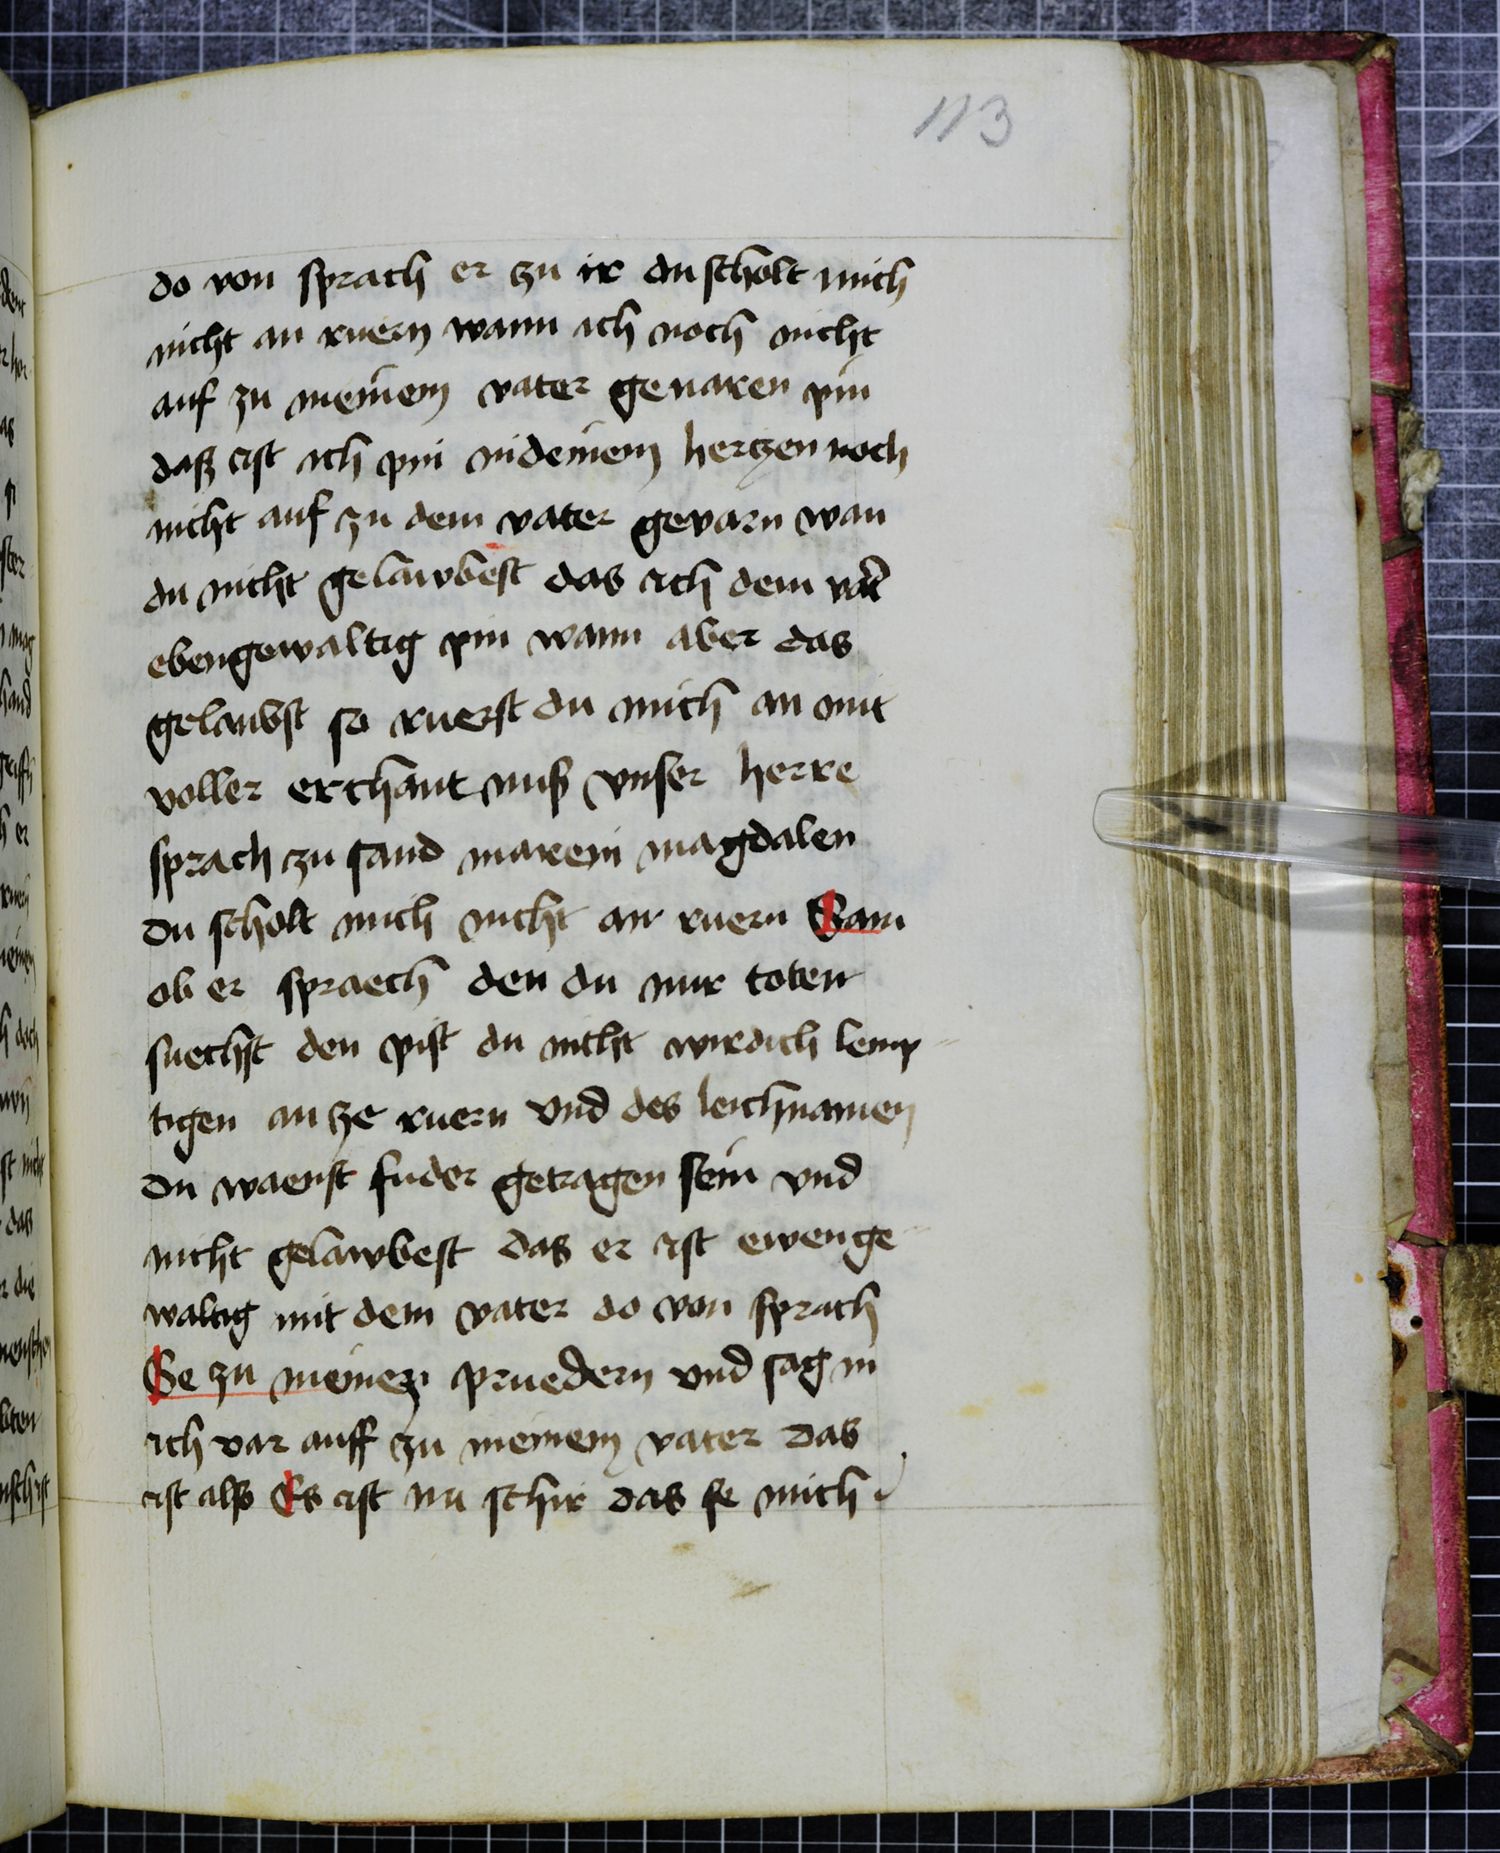 113
do von sprach er zu ir du scholt mich
nicht an ruern wann ich noch nicht
auf zu meinem vater gevaren pin
dasz ist ich pin in deinem hertzen noch
nicht auf zu dem vater gevarn wan
du nicht gelawbest das ich dem vater
ebengewaltig pin wann aber das
gelaubst so ruerst du mich an mit
voller erchantnuß vnser herre
sprach zu sand marein magdalen
du scholt mich nicht an ruern Sam
ob er spraech den du nur toten
suechst den pist du nicht wirdich lemp
tigen an ze ruern vnd des leichnamen
du waenst fuder getragen sein vnd
nicht gelawbest das er ist ewenge
waltig mit dem vater do von sprach
Ge zu meinen pruedern vnd sag in
ich var auff zu meinem vater das
ist alß Es ist nu schir das se mich